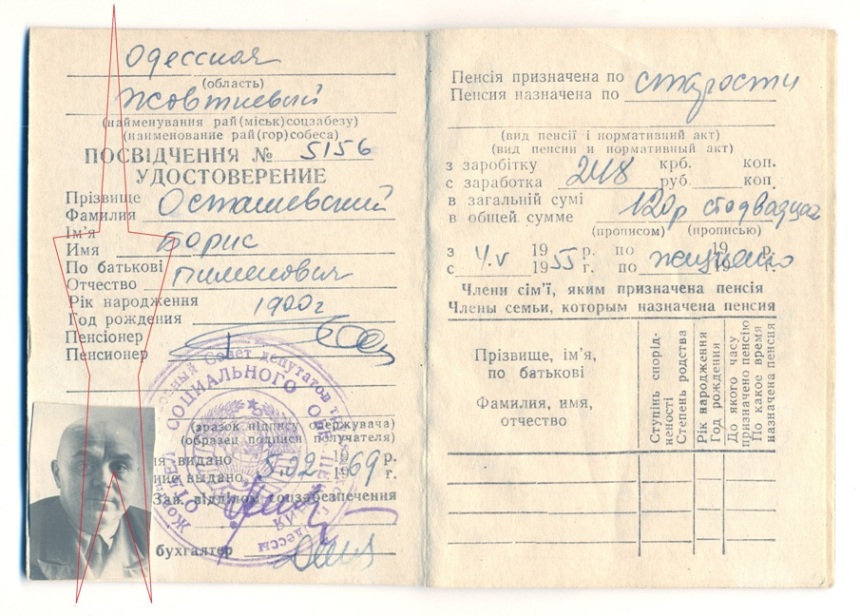 Одесская
(область)
Жовтневый
(найменування рай(міськ)соцзабезу)
(наименование рай(гор)собеса)
ПОСВІДЧЕННЯ № 5156
УДОСТОВЕРЕНИЕ
Прізвище
Фамилия Осташевский
Ім'я
Имя Борис
По батькові
Отчество Пименович
Рік народження 1900г
Год рождения
Пенсіонер
Пенсионер
(зразок підпису одержувача)
(образец подписи получателя)
видано 5.02. 19 р.
выдано 1969 г.
Зав. відділом соцзабезпечення
бухгалтер
СОЦИАЛЬНОГО
Совет депутатов
ОТДЕЛ
Одессы
Пенсія призначена по
Пенсия назначена по старости
(вид пенсії і нормативний акт)
(вид пенсии и нормативный акт)
з заробітку 248 крб. коп.
с заработка руб. коп.
в загальній сумі
в общей сумме 120р стодвадцат
(прописом) (прописью)
з 4.V 19 р. по 19 р.
с 1955 г. по пожизненно 19
Члени сім'ї, яким призначена пенсія
Члены семьи, которым назначена пенсия
Прізвище, ім'я,
по батькові
Фамилия, имя,
отчество
Ступінь спорід-
неності
Степень родства
Рік народження
Год рождения
До якого часу
призначено пенсію
По какое время
назначена пенсия